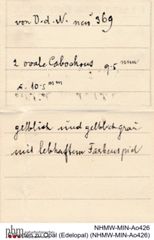 von V.d.N. neu 369
2 ovale Cabochons 9·5 mm
10·5 mm
gelblich und gelblichgrau
mit lebhaftem Farbenspiel
NHMW-MIN-Ao426
nhm
Etiketten zu Opal (Edelopal) (NHMW-MIN-Ao426)